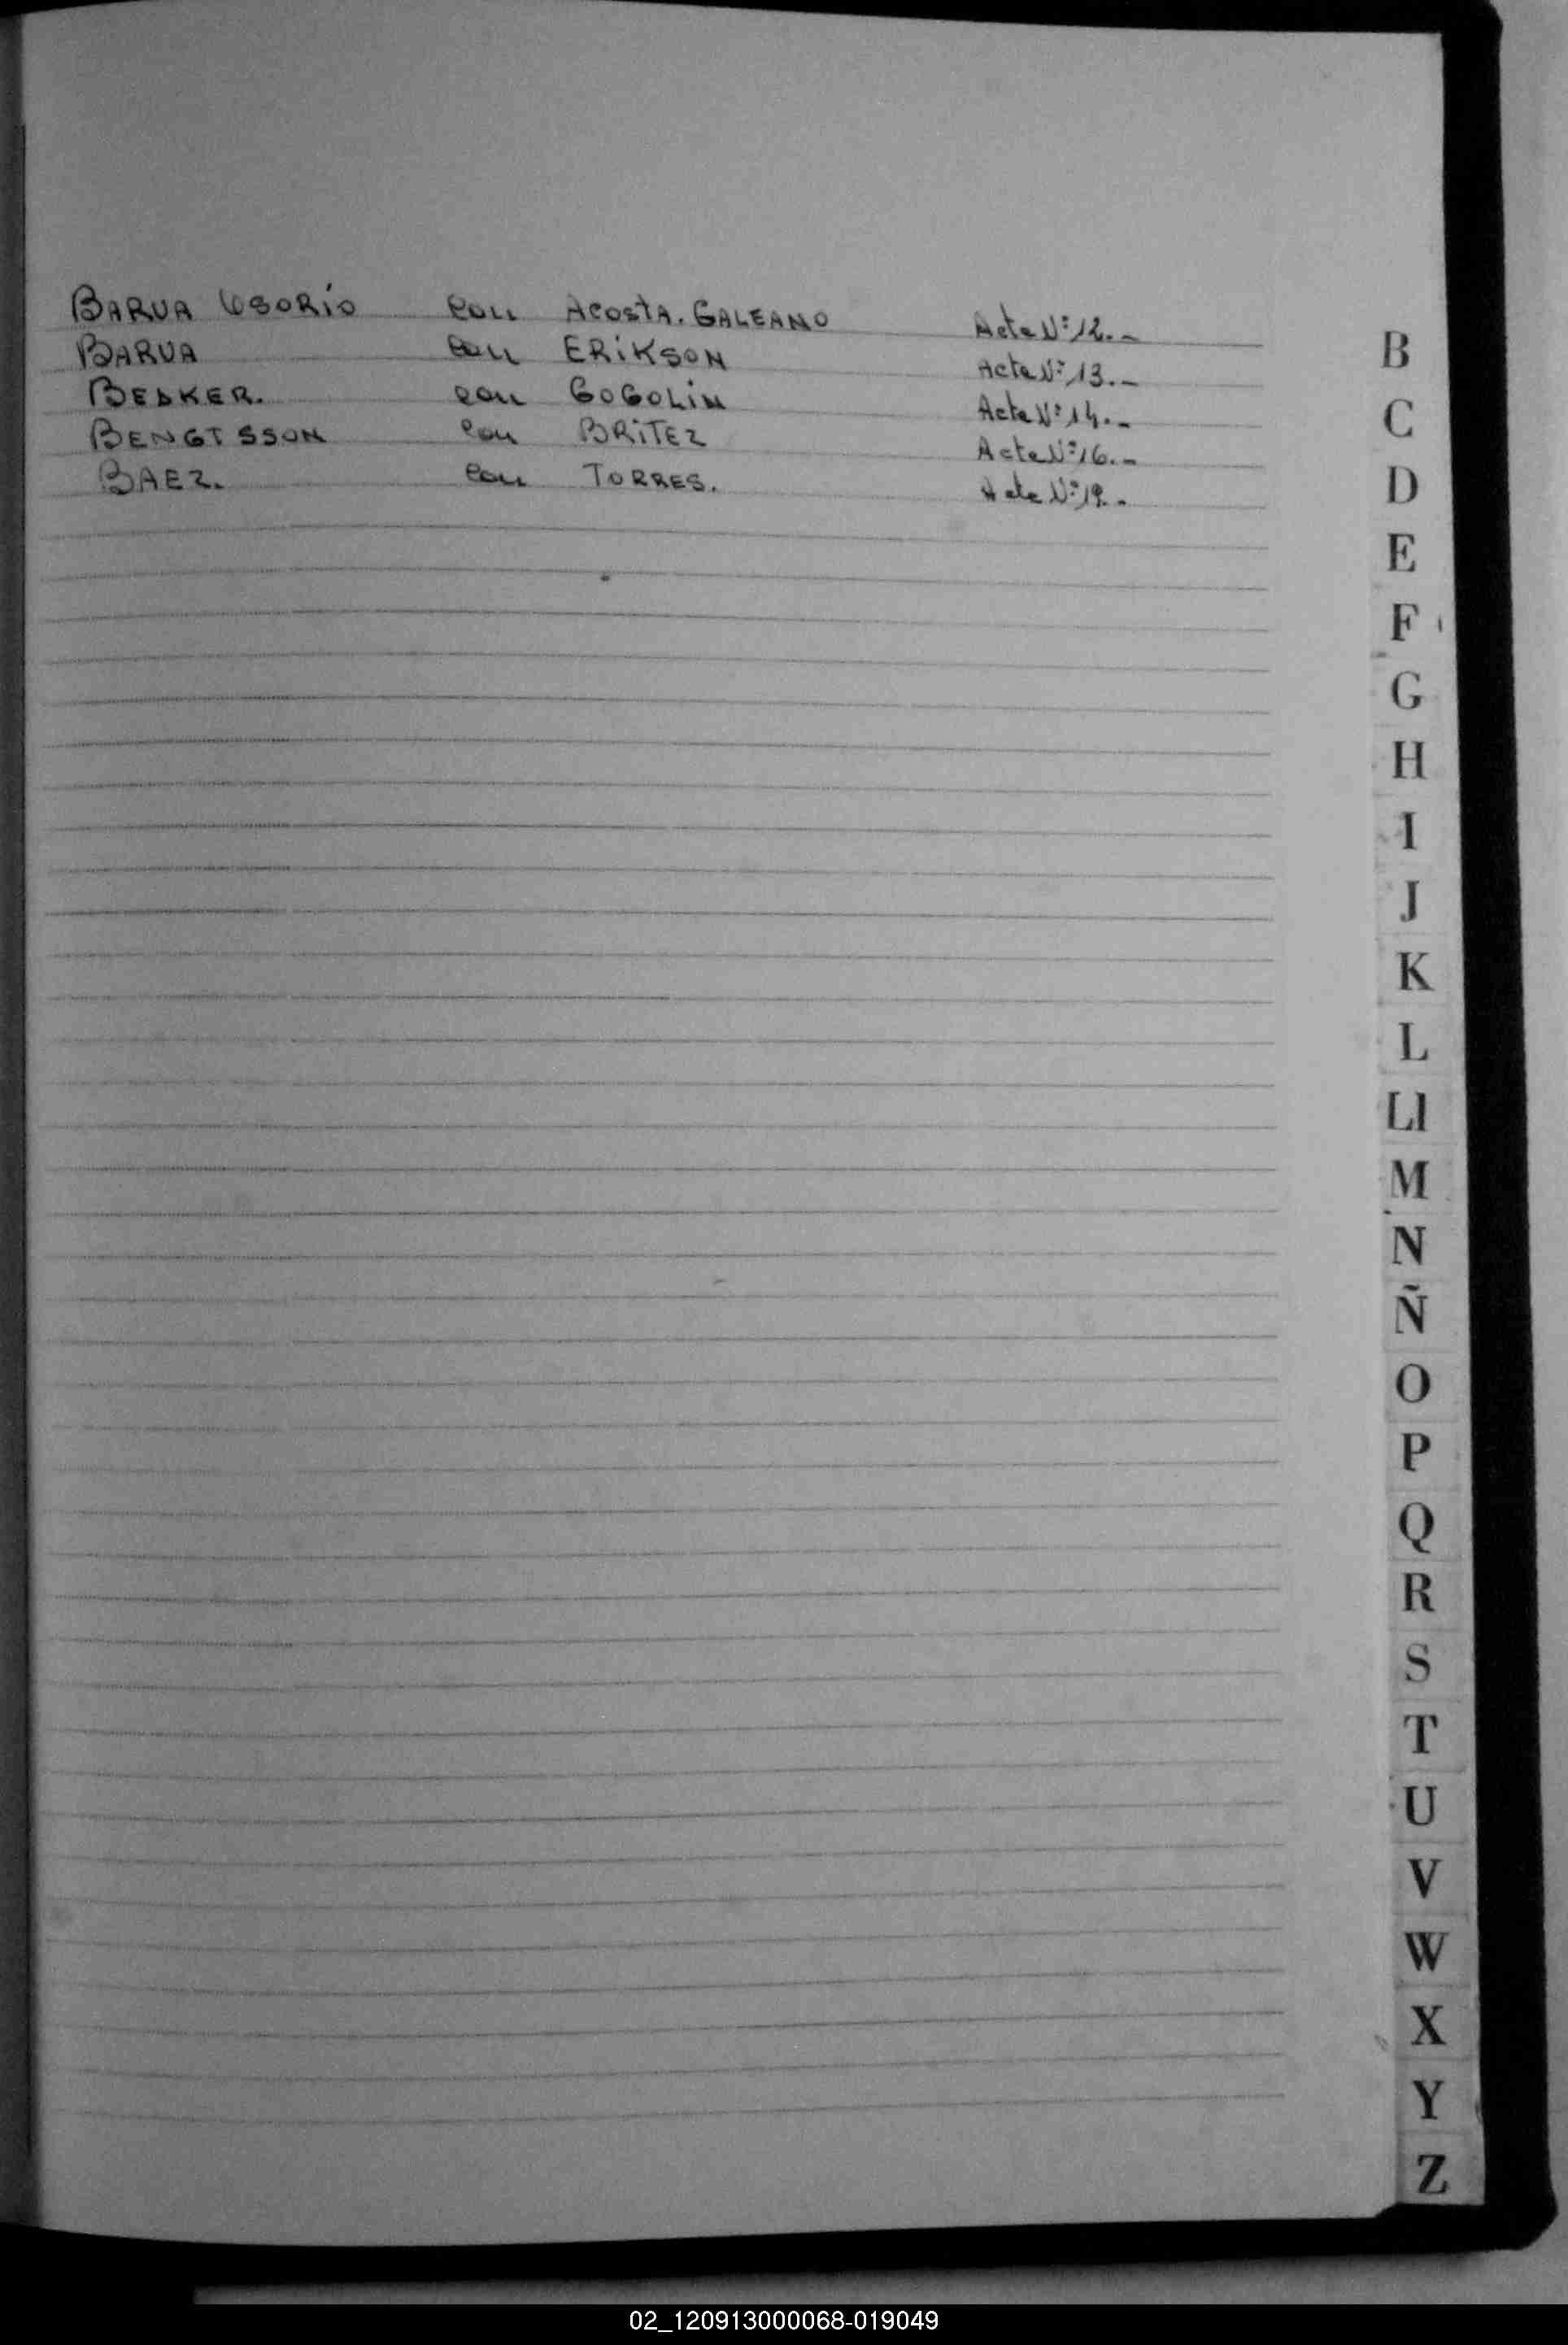 BARUA OSORIO con ACOSTA. GALEANO Acta Nº 12.-
BARUA con ERIKSON Acta Nº 13.-
BEDKER. con GOGOLIN Acta Nº 14.-
BENGTSSON con BRITEZ Acta Nº 16.-
BAEZ. con TORRES. Acta Nº 19.-
B
C
D
E
F
G
H
I
J
K
L
Ll
M
N
Ñ
O
P
Q
R
S
T
U
V
W
X
Y
Z
02_120913000068-019049